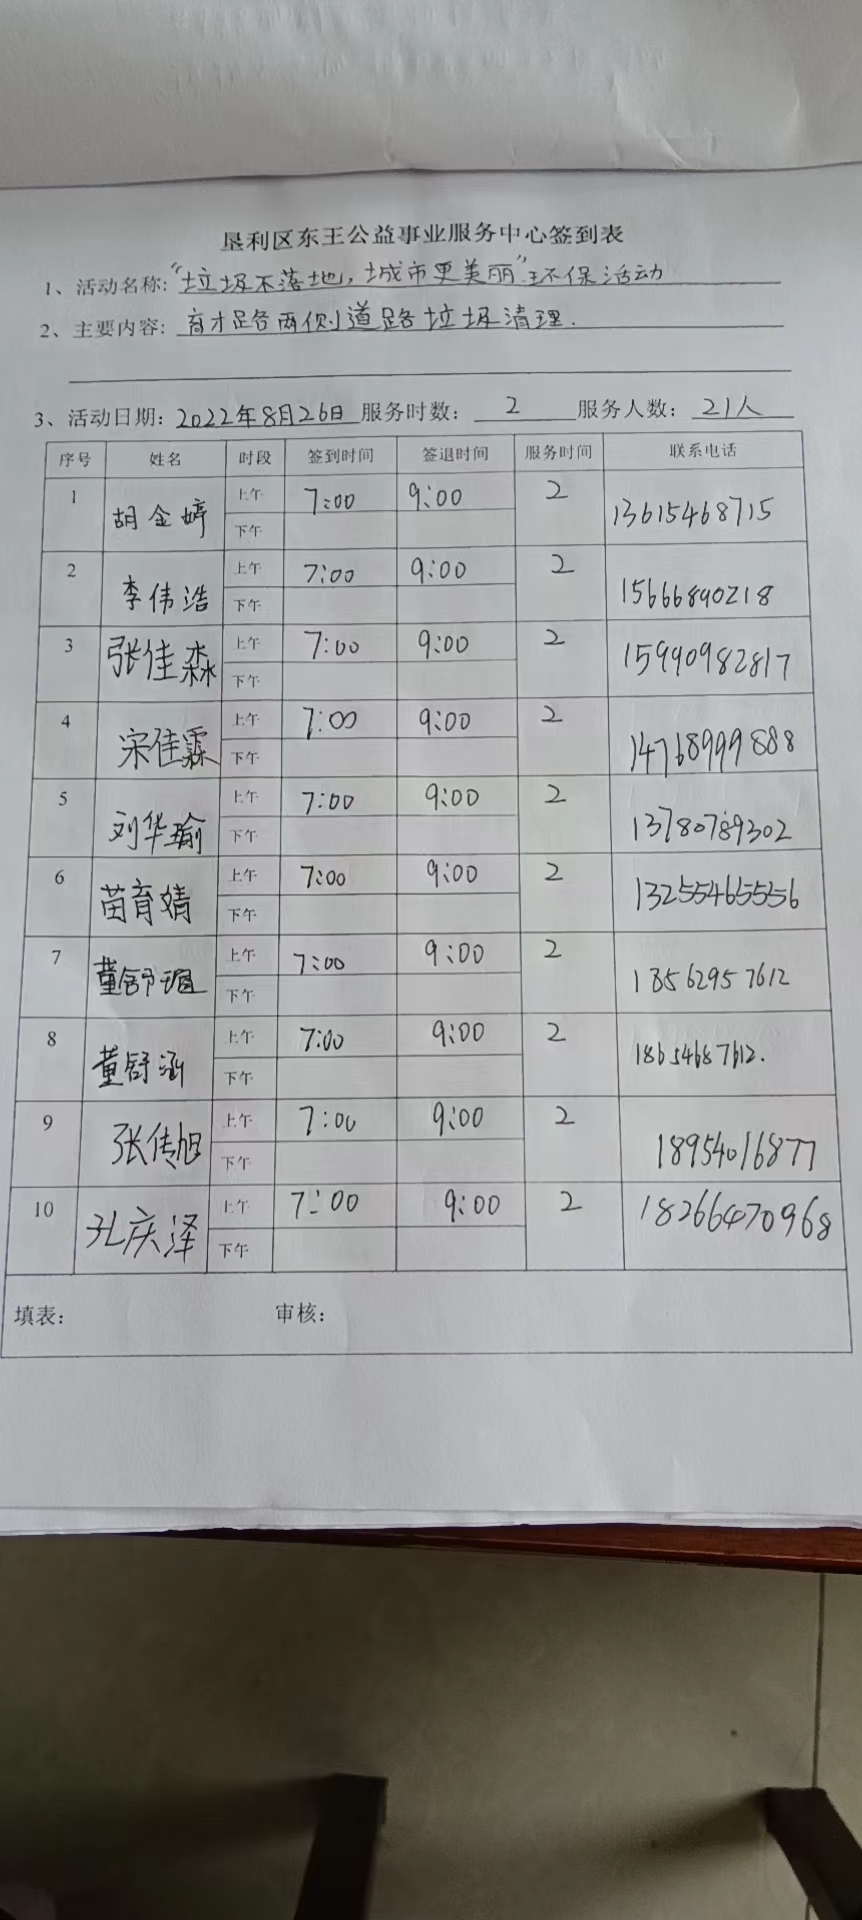 垦利区东王公益事业服务中心签到表
1、活动名称:“垃圾不落地,城市更美丽”环保活动
2、主要内容:育才路两侧道路垃圾清理.
3、活动日期:2022年8月26日 服务时数: 2 服务人数: 21人
序号 姓名 时段 签到时间 签退时间 服务时间 联系电话
1 胡金婷 上午 7:00 9:00 2 13615468715
下午
2 李伟浩 上午 7:00 9:00 2 15666890218
下午
3 张佳淼 上午 7:00 9:00 2 15990982817
下午
4 宋佳霖 上午 7:00 9:00 2 14768999888
下午
5 刘华瑜 上午 7:00 9:00 2 13780789302
下午
6 苗育婧 上午 7:00 9:00 2 13255465556
下午
7 董舒 上午 7:00 9:00 2 13562957612
下午
8 董舒涵 上午 7:00 9:00 2 18654687612.
下午
9 张传旭 上午 7:00 9:00 2 18954016877
下午
10 孔庆泽 上午 7:00 9:00 2 18266470968
下午
填表: 审核: